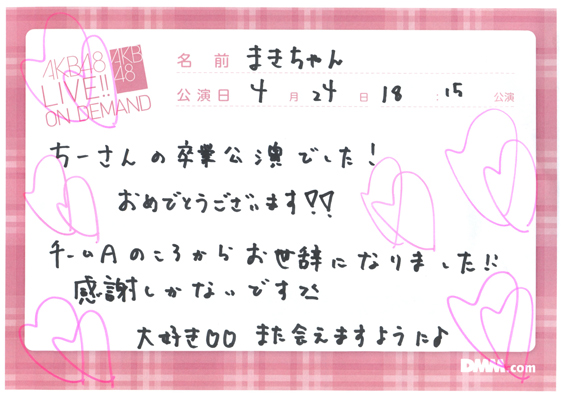 AKB48
LIVE!!
ON DEMAND
AKB
48
名前 まきちゃん
公演日 4月24日 18:15公演
ちーさんの卒業公演でした!
おめでとうございます♡♡
チームAのころからお世辞になりました!!
感謝しかないです
大好き○○ また会えますように♪
DMM.com